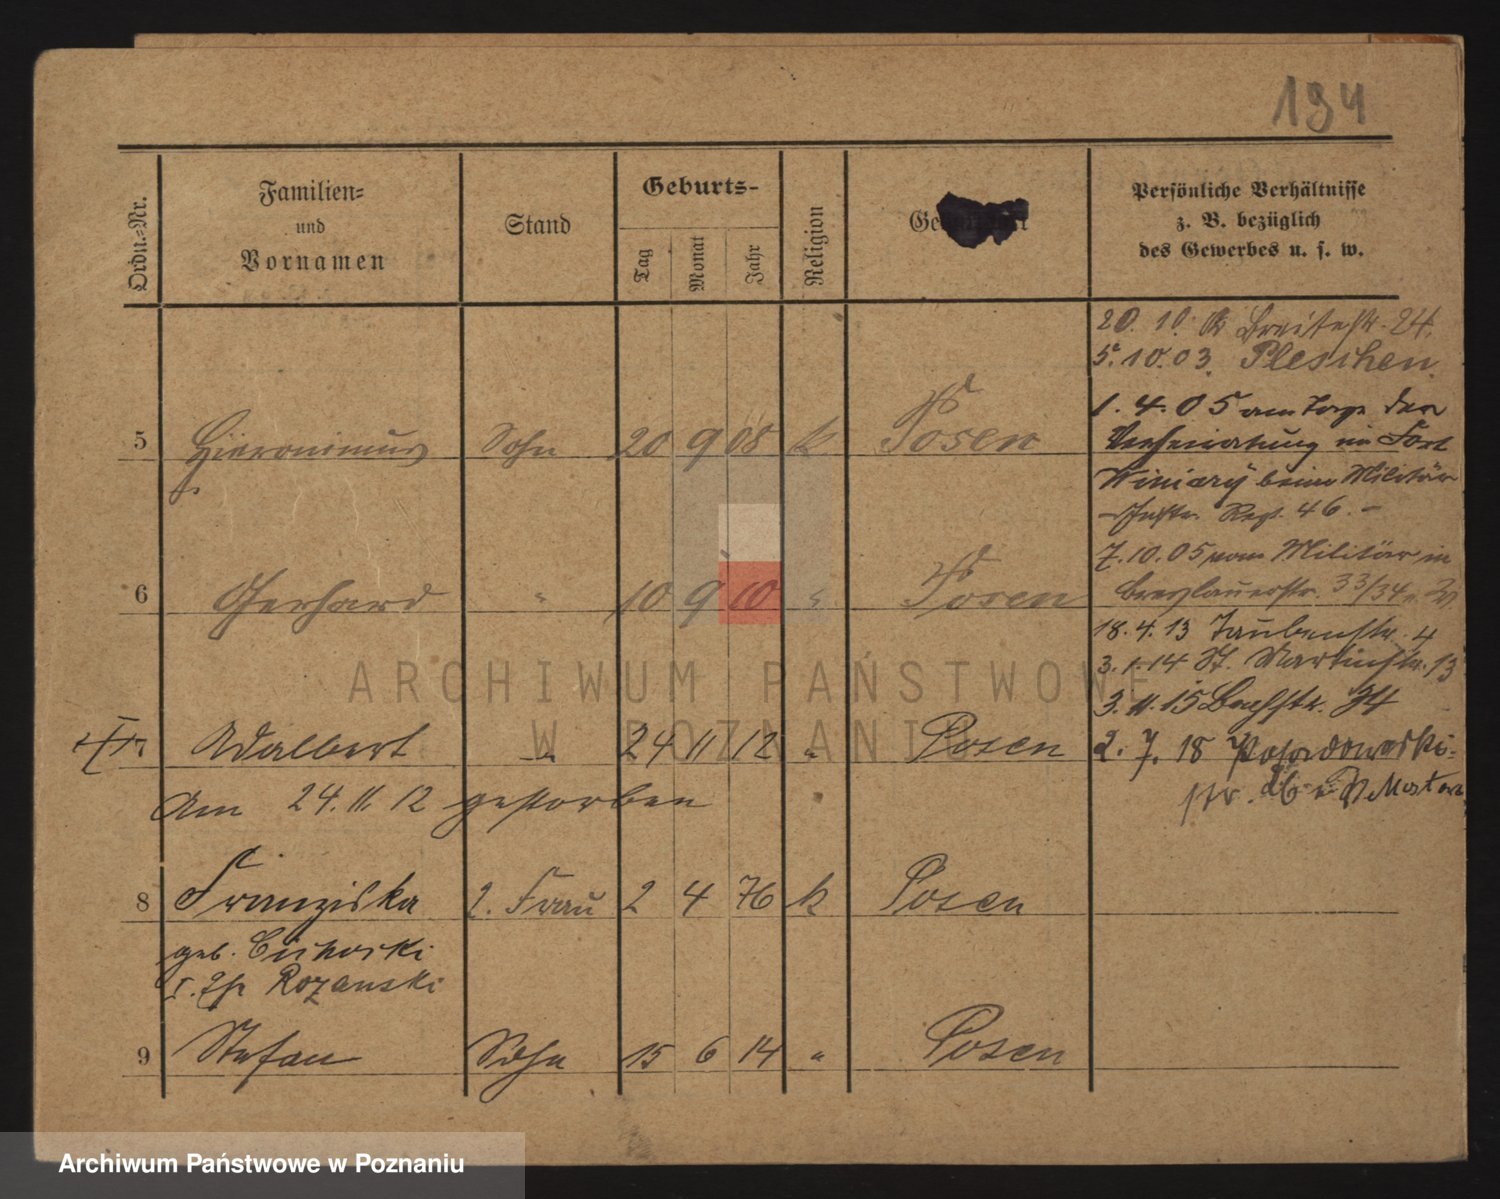 194
Ordn.-Nr.
Familien-
und
Vornamen
Stand
Geburts-
Tag
Monat
Jahr
Religion
Persönliche Verhältnisse
z. B. bezüglich
des Gewerbes u. s. w.
20. 10. Breitestr. 24.
5. 10. 03. Pleschen.
1. 4. 05 am Tage der
Verheiratung im Fort
Winiary beim Militär
Inftr. Regt. 46. -
5 Hieronimus Sohn 20 9 08 k. Posen
7. 10. 05 vom Militär in
Breslauerstr. 33/34
6 Gerhard " 10 9 10 " Posen
18. 4. 13 Taubenstr. 4
3. 1. 14 St. Martinstr. 13
3. 11. 15 Bachstr. 34
7 Adalbert " 24 11 12 " Posen
2. 7. 18 Posadowski-
str.
Am 24. 11. 12 gestorben
8 Franziska 2. Frau 2 4 76 k Posen
geb. Cichoski
Rozanski
9 Stefan Sohn 15 6 14 " Posen
ARCHIWUM PAŃSTWOWE
W POZNANIU
Archiwum Państwowe w Poznaniu